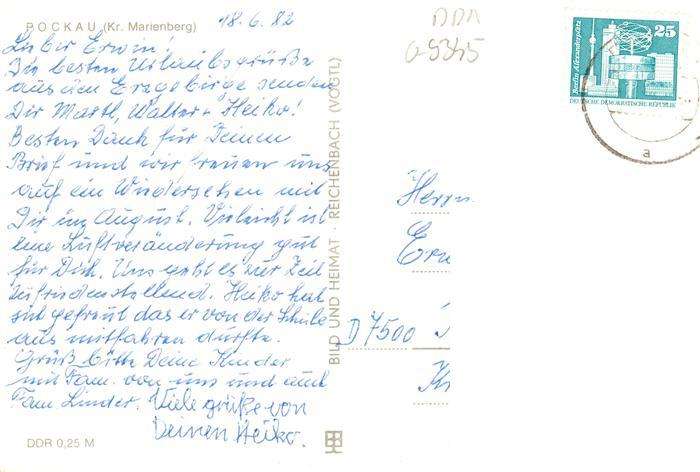 BOCKAU (Kr. Marienberg)
18.6.82
Lieber Erwin!
Die besten Urlaubsgrüße
aus dem Erzgebirge senden
Dir Martl, Walter + Heiko!
Besten Dank für Deinen
Brief und wir freuen uns
auf ein Wiedersehen mit
Dir im August. Vielleicht ist
eine Luftveränderung gut
für Dich. Uns geht es zur Zeit
zufriedenstellend. Heiko hat
sich gefreut das er von der Schule
aus mitfahren durfte.
Grüß bitte Deine Kinder
mit Fam. von uns und auch
Fam. Linder. Viele grüße von
Deinen Heiko.
DDR 0,25 M
BILD UND HEIMAT · REICHENBACH (VOGTL)
DDR
a-5345
Berlin, Alexanderplatz
25
DEUTSCHE DEMOKRATISCHE REPUBLIK
a
Herrn
Erw
D 7500